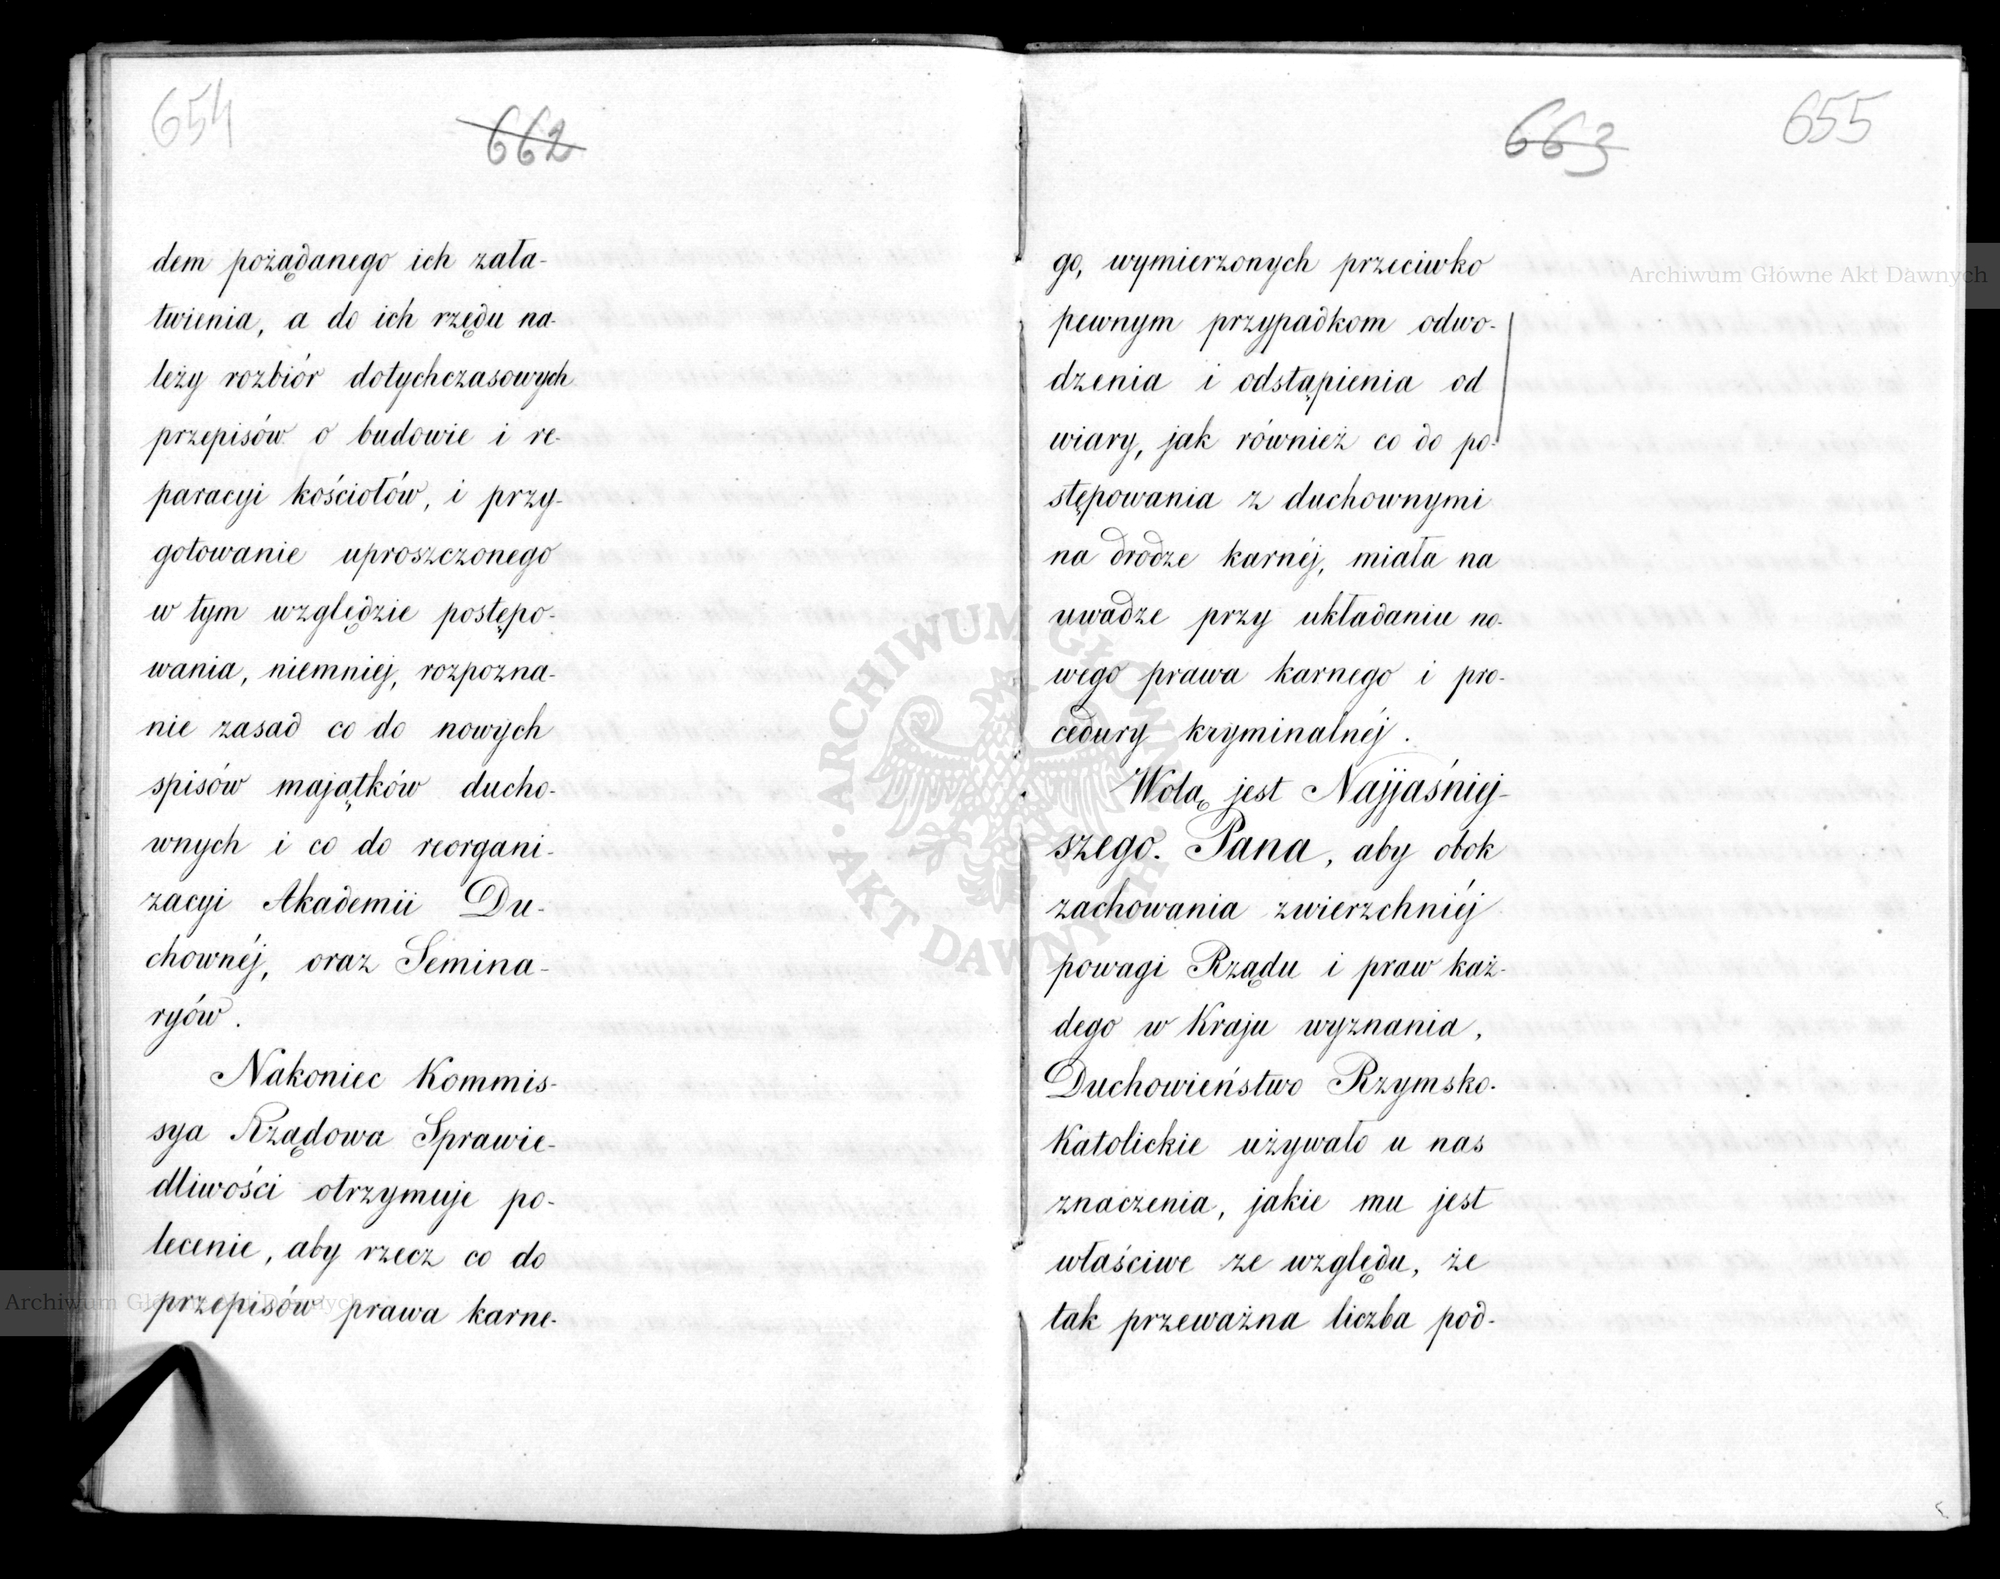 654
662
dem pożądanego ich zała-
twienia, a do ich rzędu na-
leży rozbiór dotychczasowych
przepisów o budowie i re-
paracyi kościołów, i przy-
gotowanie uproszczonego
w tym względzie postępo-
wania, niemniej, rozpozna-
nie zasad co do nowych
spisów majątków ducho-
wnych i co do reorgani-
zacyi Akademii Du-
chownéj, oraz Semina-
ryów.
Nakoniec Kommis-
sya Rządowa Sprawie-
dliwości otrzymuje po-
lecenie, aby rzecz co do
przepisów prawa karne-
663
655
go, wymierzonych przeciwko
pewnym przypadkom odwo-
dzenia i odstąpienia od
wiary, jak również co do po-
stępowania z duchownymi
na drodze karnéj, miała na
uwadze przy układaniu no-
wego prawa karnego i pro-
cedury kryminalnéj.
Wolą jest Najjaśniej-
szego Pana, aby obok
zachowania zwierzchniéj
powagi Rządu i praw każ-
dego w Kraju wyznania,
Duchowieństwo Rzymsko-
Katolickie używało u nas
znaczenia, jakie mu jest
właściwe ze względu, że
tak przeważna liczba pod-
Archiwum Główne Akt Dawnych
Archiwum Główne Akt Dawnych
ARCHIWUM GŁÓWNE · AKT DAWNYCH ·